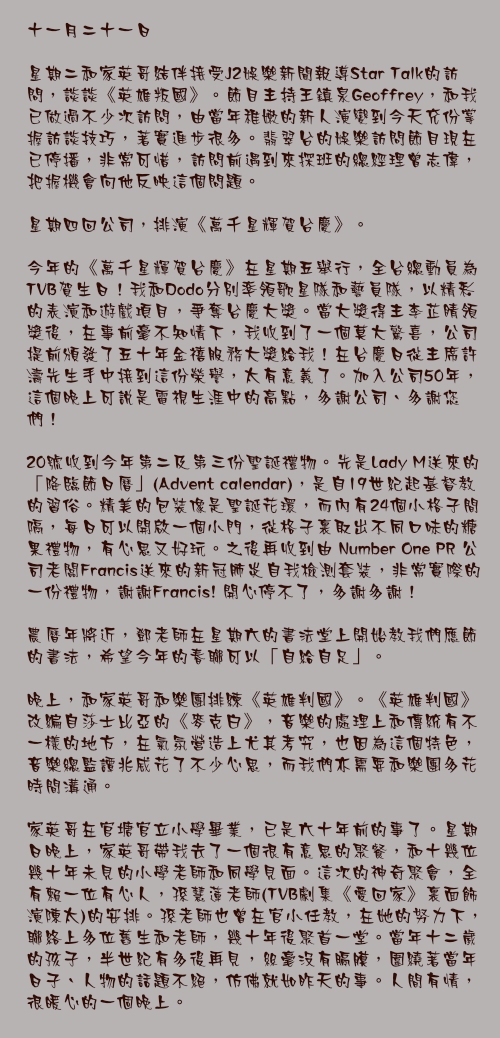 十一月二十一日
星期二和家英哥夥伴接受J2娛樂新聞報導Star Talk的訪
問，談談《英雄叛國》。節目主持王鎮泉Geoffrey，和我
已做過不少次訪問，由當年稚嫩的新人演變到今天充份掌
握訪談技巧，著實進步很多。翡翠台的娛樂訪問節目現在
已停播，非常可惜，訪問前遇到來探班的總經理曾志偉，
把握機會向他反映這個問題。
星期四回公司，排演《萬千星輝賀台慶》。
今年的《萬千星輝賀台慶》在星期五舉行，全台總動員為
TVB賀生日！我和Dodo分別率領歌星隊和藝員隊，以精彩
的表演和遊戲項目，爭奪台慶大獎。當大獎得主李芷晴領
獎後，在事前毫不知情下，我收到了一個莫大驚喜，公司
提前頒發了五十年金禧服務大獎給我！在台慶日從主席許
濤先生手中接到這份榮譽，太有意義了。加入公司50年，
這個晚上可說是電視生涯中的高點，多謝公司、多謝您
們！
20號收到今年第二及第三份聖誕禮物。先是Lady M送來的
「降臨節日曆」(Advent calendar)，是自19世紀起基督教
的習俗。精美的包裝像是聖誕花環，而內有24個小格子間
隔，每日可以開啟一個小門，從格子裏取出不同口味的糖
果禮物，有心思又好玩。之後再收到由 Number One PR 公
司老闆Francis送來的新冠肺炎自我檢測套裝，非常實際的
一份禮物，謝謝Francis! 開心停不了，多謝多謝！
農曆年將近，鄧老師在星期六的書法堂上開始教我們應節
的書法，希望今年的春聯可以「自給自足」。
晚上，和家英哥和樂團排練《英雄判國》。《英雄判國》
改編自莎士比亞的《麥克白》，音樂的處理上和傳統有不
一樣的地方，在氣氛營造上尤其考究，也因為這個特色，
音樂總監譚兆威花了不少心思，而我們亦需要和樂團多花
時間溝通。
家英哥在官塘官立小學畢業，已是六十年前的事了。星期
日晚上，家英哥帶我去了一個很有意思的聚餐，和十幾位
幾十年未見的小學老師和同學見面。這次的神奇聚會，全
有賴一位有心人，孫慧蓮老師(TVB劇集《愛回家》裏面飾
演陳太)的安排。孫老師也曾在官小任教，在她的努力下，
聯絡上多位舊生和老師，幾十年後聚首一堂。當年十二歲
的孩子，半世紀有多後再見，絲毫沒有隔膜，圍繞著當年
日子、人物的話題不絕，仿佛就如昨天的事。人間有情，
很暖心的一個晚上。